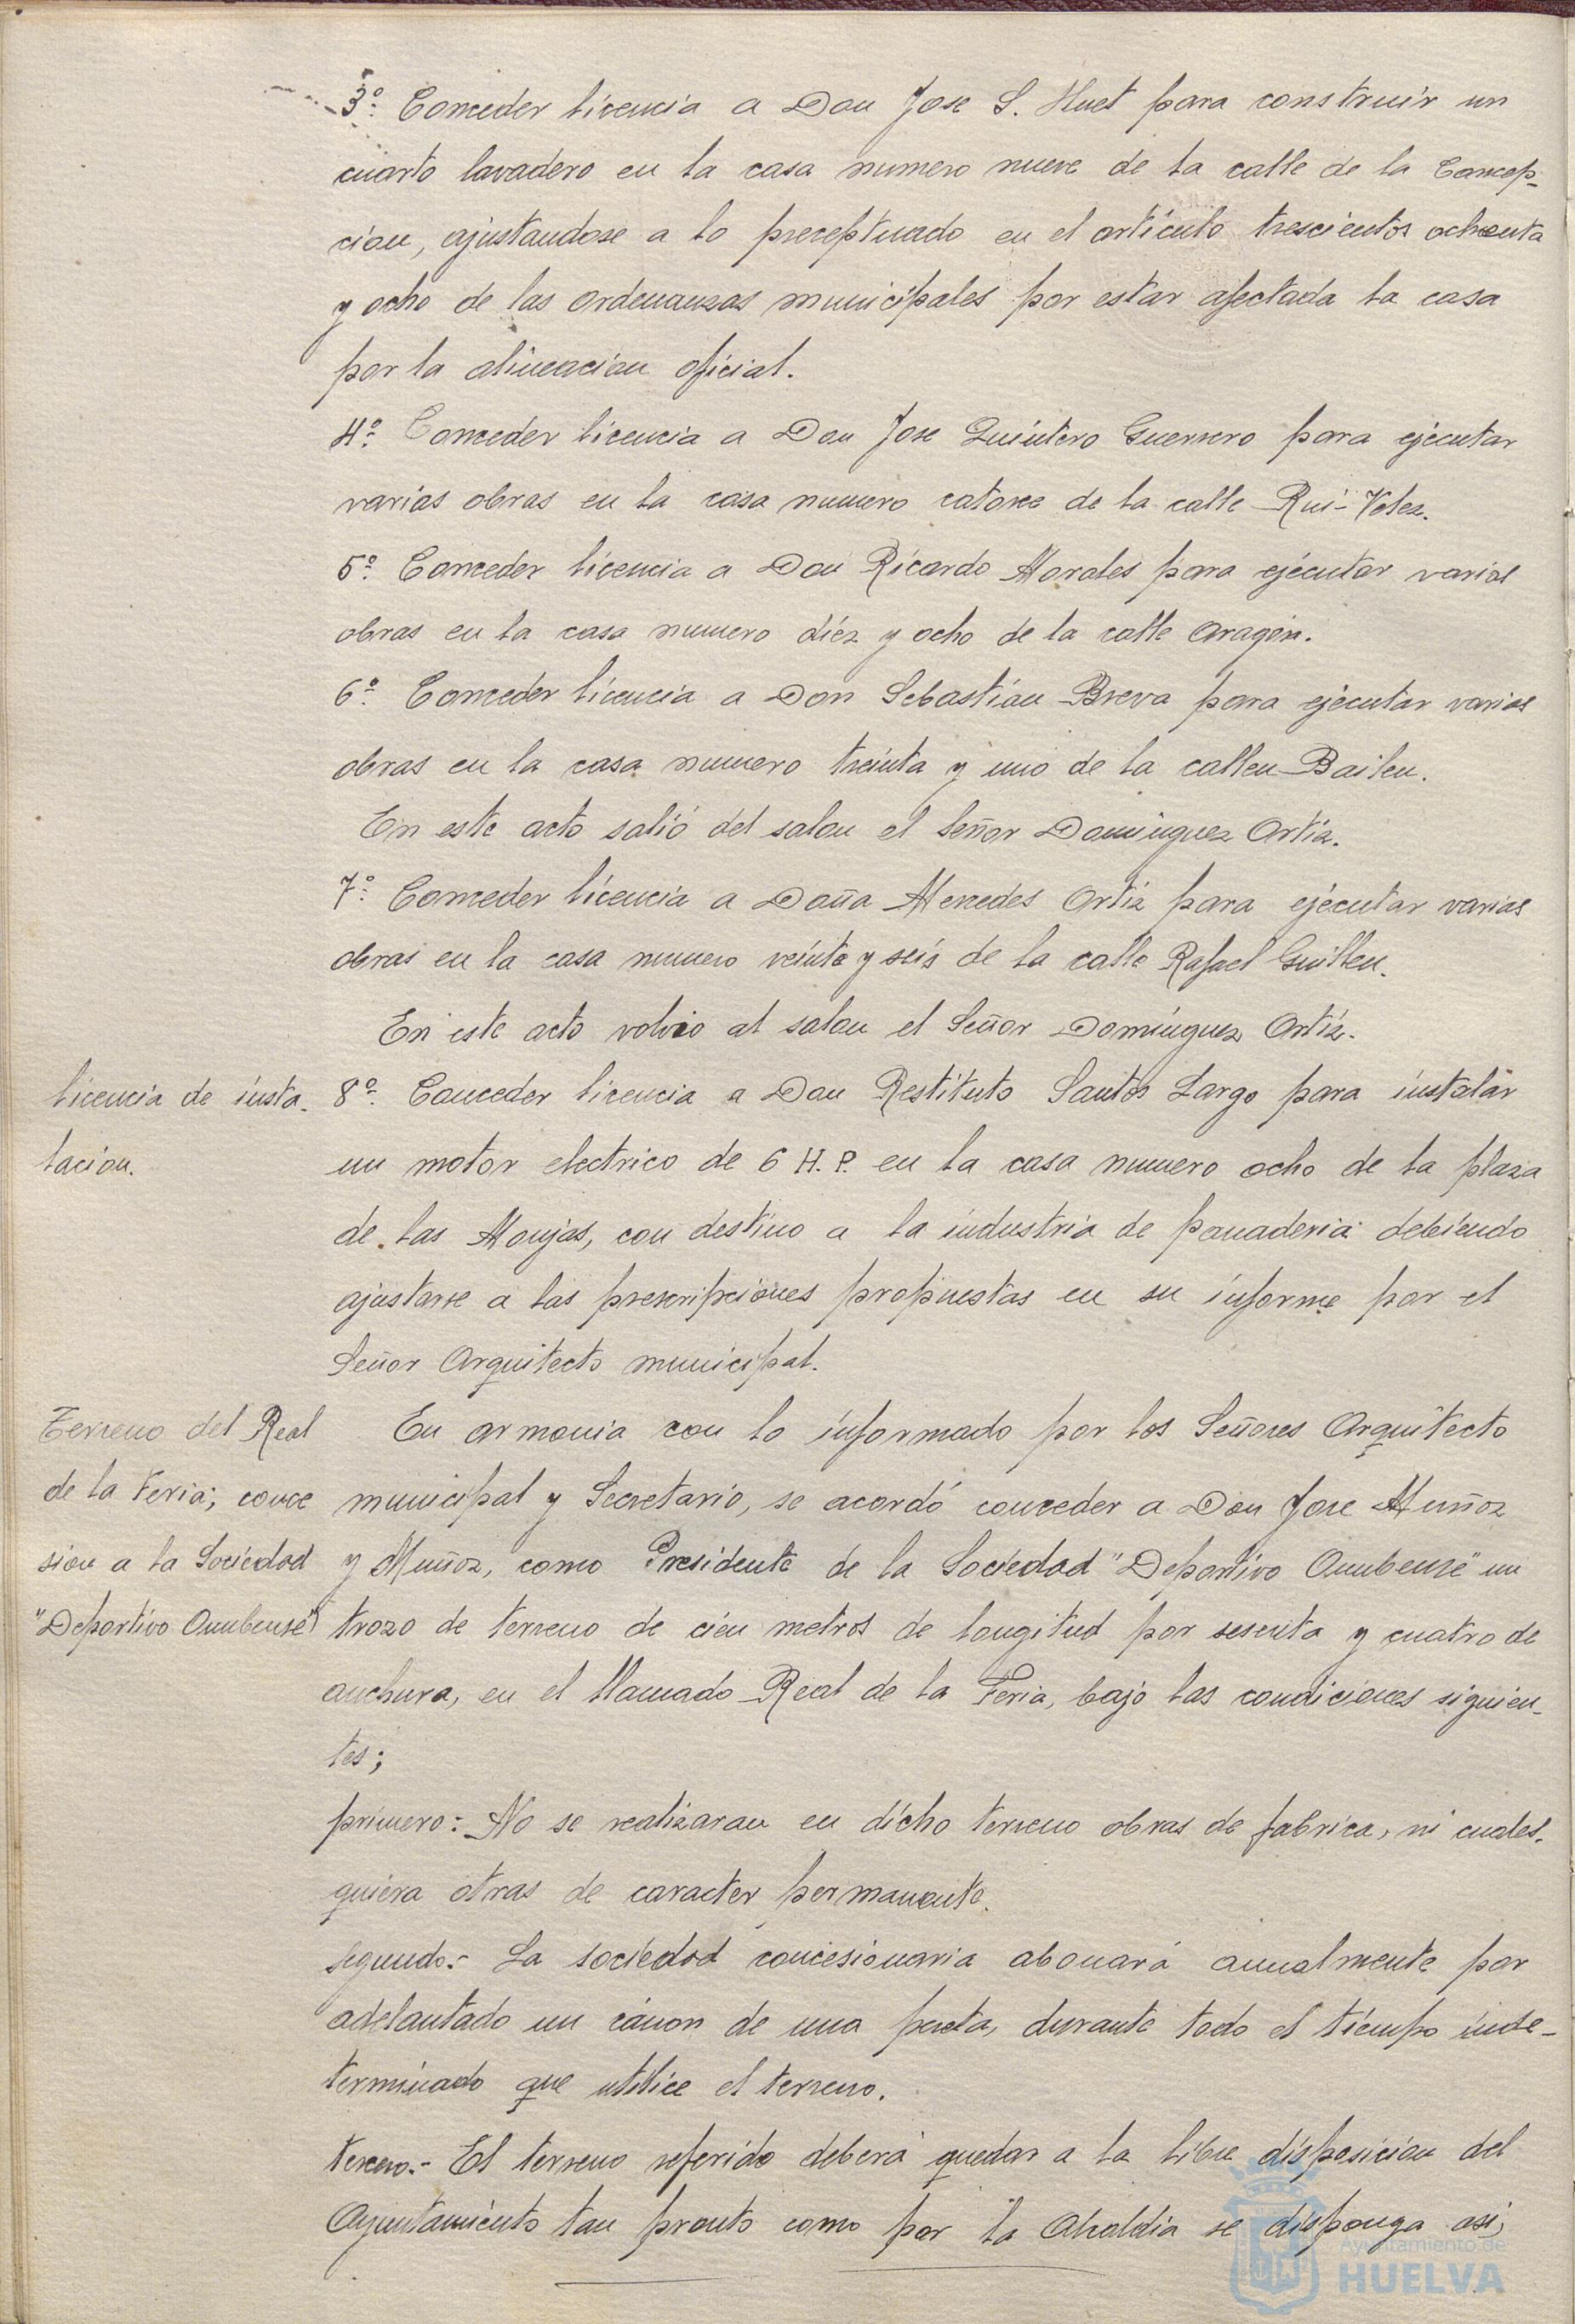 3º Conceder licencia a Don Jose S. Huet para construir un
cuarto lavadero en la casa numero nueve de la calle de la Concep-
cion, ajustandose a lo preceptuado en el articulo trescientos ochenta
y ocho de las Ordenanzas municipales por estar afectada la casa
por la alineacion oficial.
4º Conceder licencia a Don Jose Quintero Guerrero para ejecutar
varias obras en la casa numero catorce de la calle Rui-Velez.
5º Conceder licencia a Don Ricardo Morales para ejecutar varias
obras en la casa numero diez y ocho de la calle Aragón.
6º Conceder licencia a Don Sebastian Breva para ejecutar varias
obras en la casa numero treinta y uno de la calleu Bailen.
En este acto salió del salon el Señor Dominguez Ortiz.
7º Conceder licencia a Doña Mercedes Ortiz para ejecutar varias
obras en la casa numero veinte y seis de la calle Rafael Guillen.
En este acto volvio al salon el Señor Dominguez Ortiz.
licencia de insta-
lacion.
8º Conceder licencia a Don Restituto Santos Largo para instalar
un motor electrico de 6 H.P. en la casa numero ocho de la plaza
de las Monjas, con destino a la industria de panaderia debiendo
ajustarse a las prescripciones propuestas en su informe por el
Señor Arquitecto municipal.
Terreno del Real
de la Feria; conce
sion a la Sociedad
"Deportivo Onubense"
En armonia con lo informado por los Señores Arquitecto
municipal y Secretario, se acordó conceder a Don Jose Muñoz
y Muñoz, como Presidente de la Sociedad "Deportivo Onubense" un
trozo de terreno de cien metros de longitud por sesenta y cuatro de
anchura, en el llamado Real de la Feria, bajo las condiciones siguien-
tes;
primero:- No se realizaran en dicho terreno obras de fabrica, ni cuales-
quiera otras de caracter permanente.
segundo:- La sociedad concesionaria abonará anualmente por
adelantado un cánon de una peseta, durante todo el tiempo inde-
terminado que utilice el terreno.
tercero.- El terreno referido deberá quedar a la libre disposicion del
Ayuntamiento tan pronto como por la Alcaldia se disponga asi,
Ayuntamiento de
HUELVA